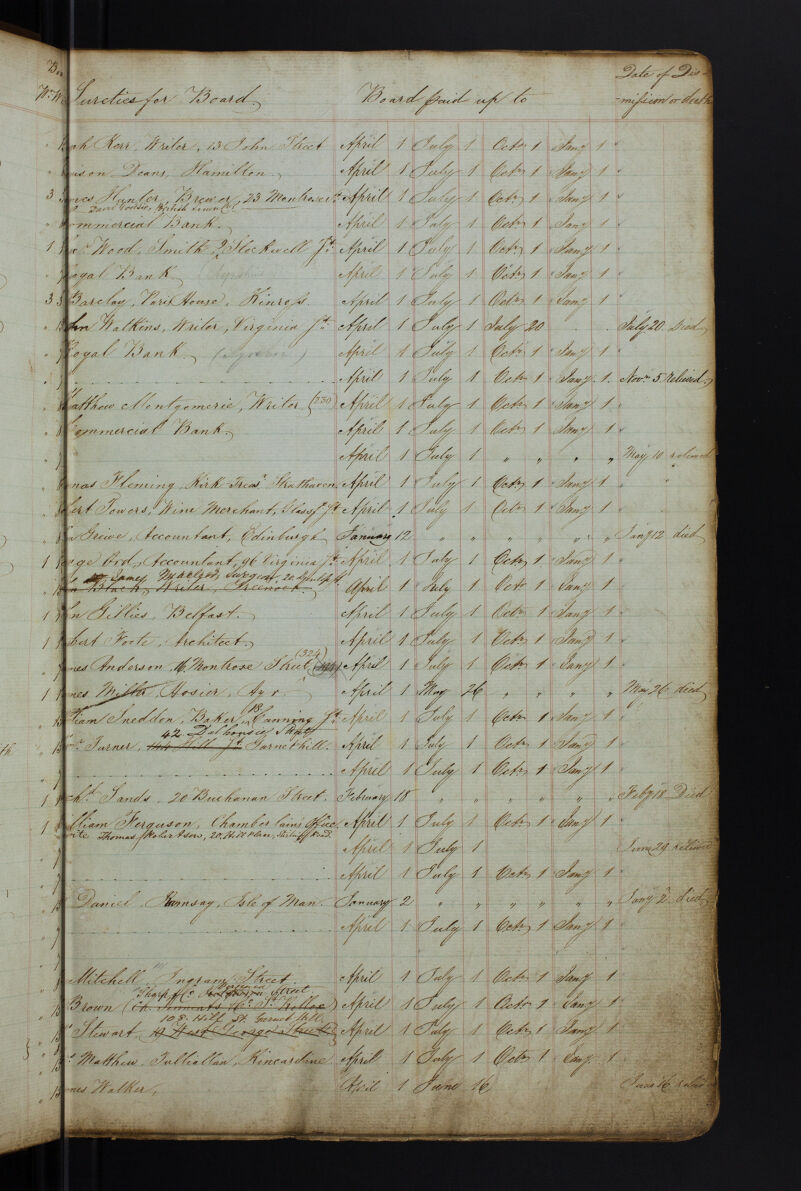 Date of Dis-
Sureties for Board Board paid up to -mission or death
Kerr, Writer, 13 John Street April 1 July 1 Octr 1 Jany 1 "
Deans, Hamilton April 1 July 1 Octr 1 Jany 1 "
3 Hunter, Brewer, 23 Montrose St April 1 July 1 Octr 1 Jany 1 "
Commercial Bank. April 1 July 1 Octr 1 Jany 1 "
1 Wood, Smith, Stockwell St. April 1 July 1 Octr 1 Jany 1 "
Royal Bank April 1 July 1 Octr 1 Jany 1 "
3 Barclay, House, Kinross. April 1 July 1 Octr 1 Jany 1 "
John Watkins, Writer, Virginia St. April 1 July 1 July 20 July 20 Died
Royal Bank April 1 July 1 Octr 1 Jany 1 "
April 1 July 1 Octr 1 Jany 1. Novr 5 relieved
Matthew Montgomerie, Writer (230) April 1 July 1 Octr 1 Jany 1 "
Commercial Bank. April 1 July 1 Octr 1 Jany 1 "
April 1 July 1 " " " " May 10 relieved
Fleming, Kirk Treasr Strathaven April 1 July 1 Octr 1 Jany 1 "
Robert Powers, Wine Merchant, Glassfd St April 1 July 1 Octr 1 Jany 1 "
Grieve, Accountant, Edinburgh January 12 " " " " " " Jany 12 died
1 George Ord, Accountant, 96 Virginia St. April 1 July 1 Octr 1 Jany 1 "
James Surgeon, 20
Black, Writer, Greenock. April 1 July 1 Octr 1 Jany 1 "
1 John Gillies, Belfast. April 1 July 1 Octr 1 Jany 1 "
Robert Foote, Architect. April 1 July 1 Octr 1 Jany 1 "
(324)
James Anderson, 16 Montrose Street April 1 July 1 Octr 1 Jany 1 "
1 James Miller, Hosier, Ayr. April 1 May 26 " " " " May 26 died
18
William Sneddon, Baker, Canning St. April 1 July 1 Octr 1 Jany 1 "
42 Dalhousie Street
Turner, Garnethill. April 1 July 1 Octr 1 Jany 1 "
April 1 July 1 Octr 1 Jany 1 "
1 Sands, 20 Buchanan Street. February 18 " " " " " " Feby 18 Died
1 William Ferguson, Chamberlains Office April 1 July 1 Octr 1 Jany 1 "
Thomas Robertson, 20, Hill Place,
April 1 July 1 June 29 relieved
April 1 July 1 Octr 1 Jany 1 "
Daniel Ramsay, Isle of Man. January 2 " " " " " " Jany 2 died
April 1 July 1 Octr 1 Jany 1 "
Mitchell, Ingram Street April 1 July 1 Octr 1 Jany 1 "
Sharp & Co Street
Brown April 1 July 1 Octr 1 Jany 1 "
108 Hill St. Garnet Hill
Stewart, West George Street April 1 July 1 Octr 1 Jany 1 "
Matthew, Tulliallan, Kincardine April 1 July 1 Octr 1 Jany 1 "
James Walker, April 1 June 16 June 16 relieved